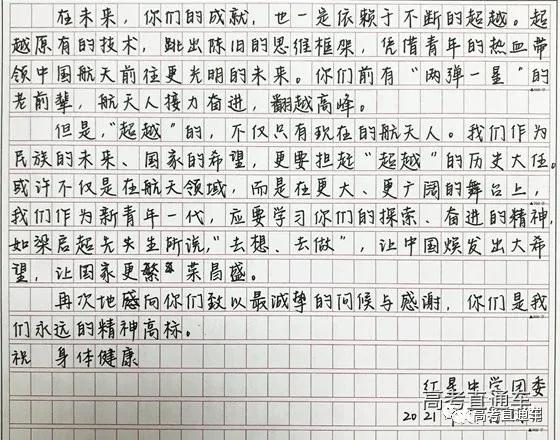 在未来，你们的成就，也一是依赖于不断的超越。超
越原有的技术，跳出陈旧的思维框架，凭借青年的热血带
领中国航天前往更光明的未来。你们前有“两弹一星”的
老前辈，航天人接力奋进，翻越高峰。
但是，“超越”的，不仅只有现在的航天人。我们作为
民族的未来、国家的希望，更要担起“超越”的历史大任。
或许不仅是在航天领域，而是在更大、更广阔的舞台上，
我们作为新青年一代，应要学习你们的探索、奋进的精神，
如梁启超先生所说，“去想、去做”，让中国焕发出大希
望，让国家更繁荣昌盛。
再次地向你们致以最诚挚的问候与感谢，你们是我
们永远的精神高标。
祝 身体健康
红星中学团委
高考直通车
2021年
高考直通车